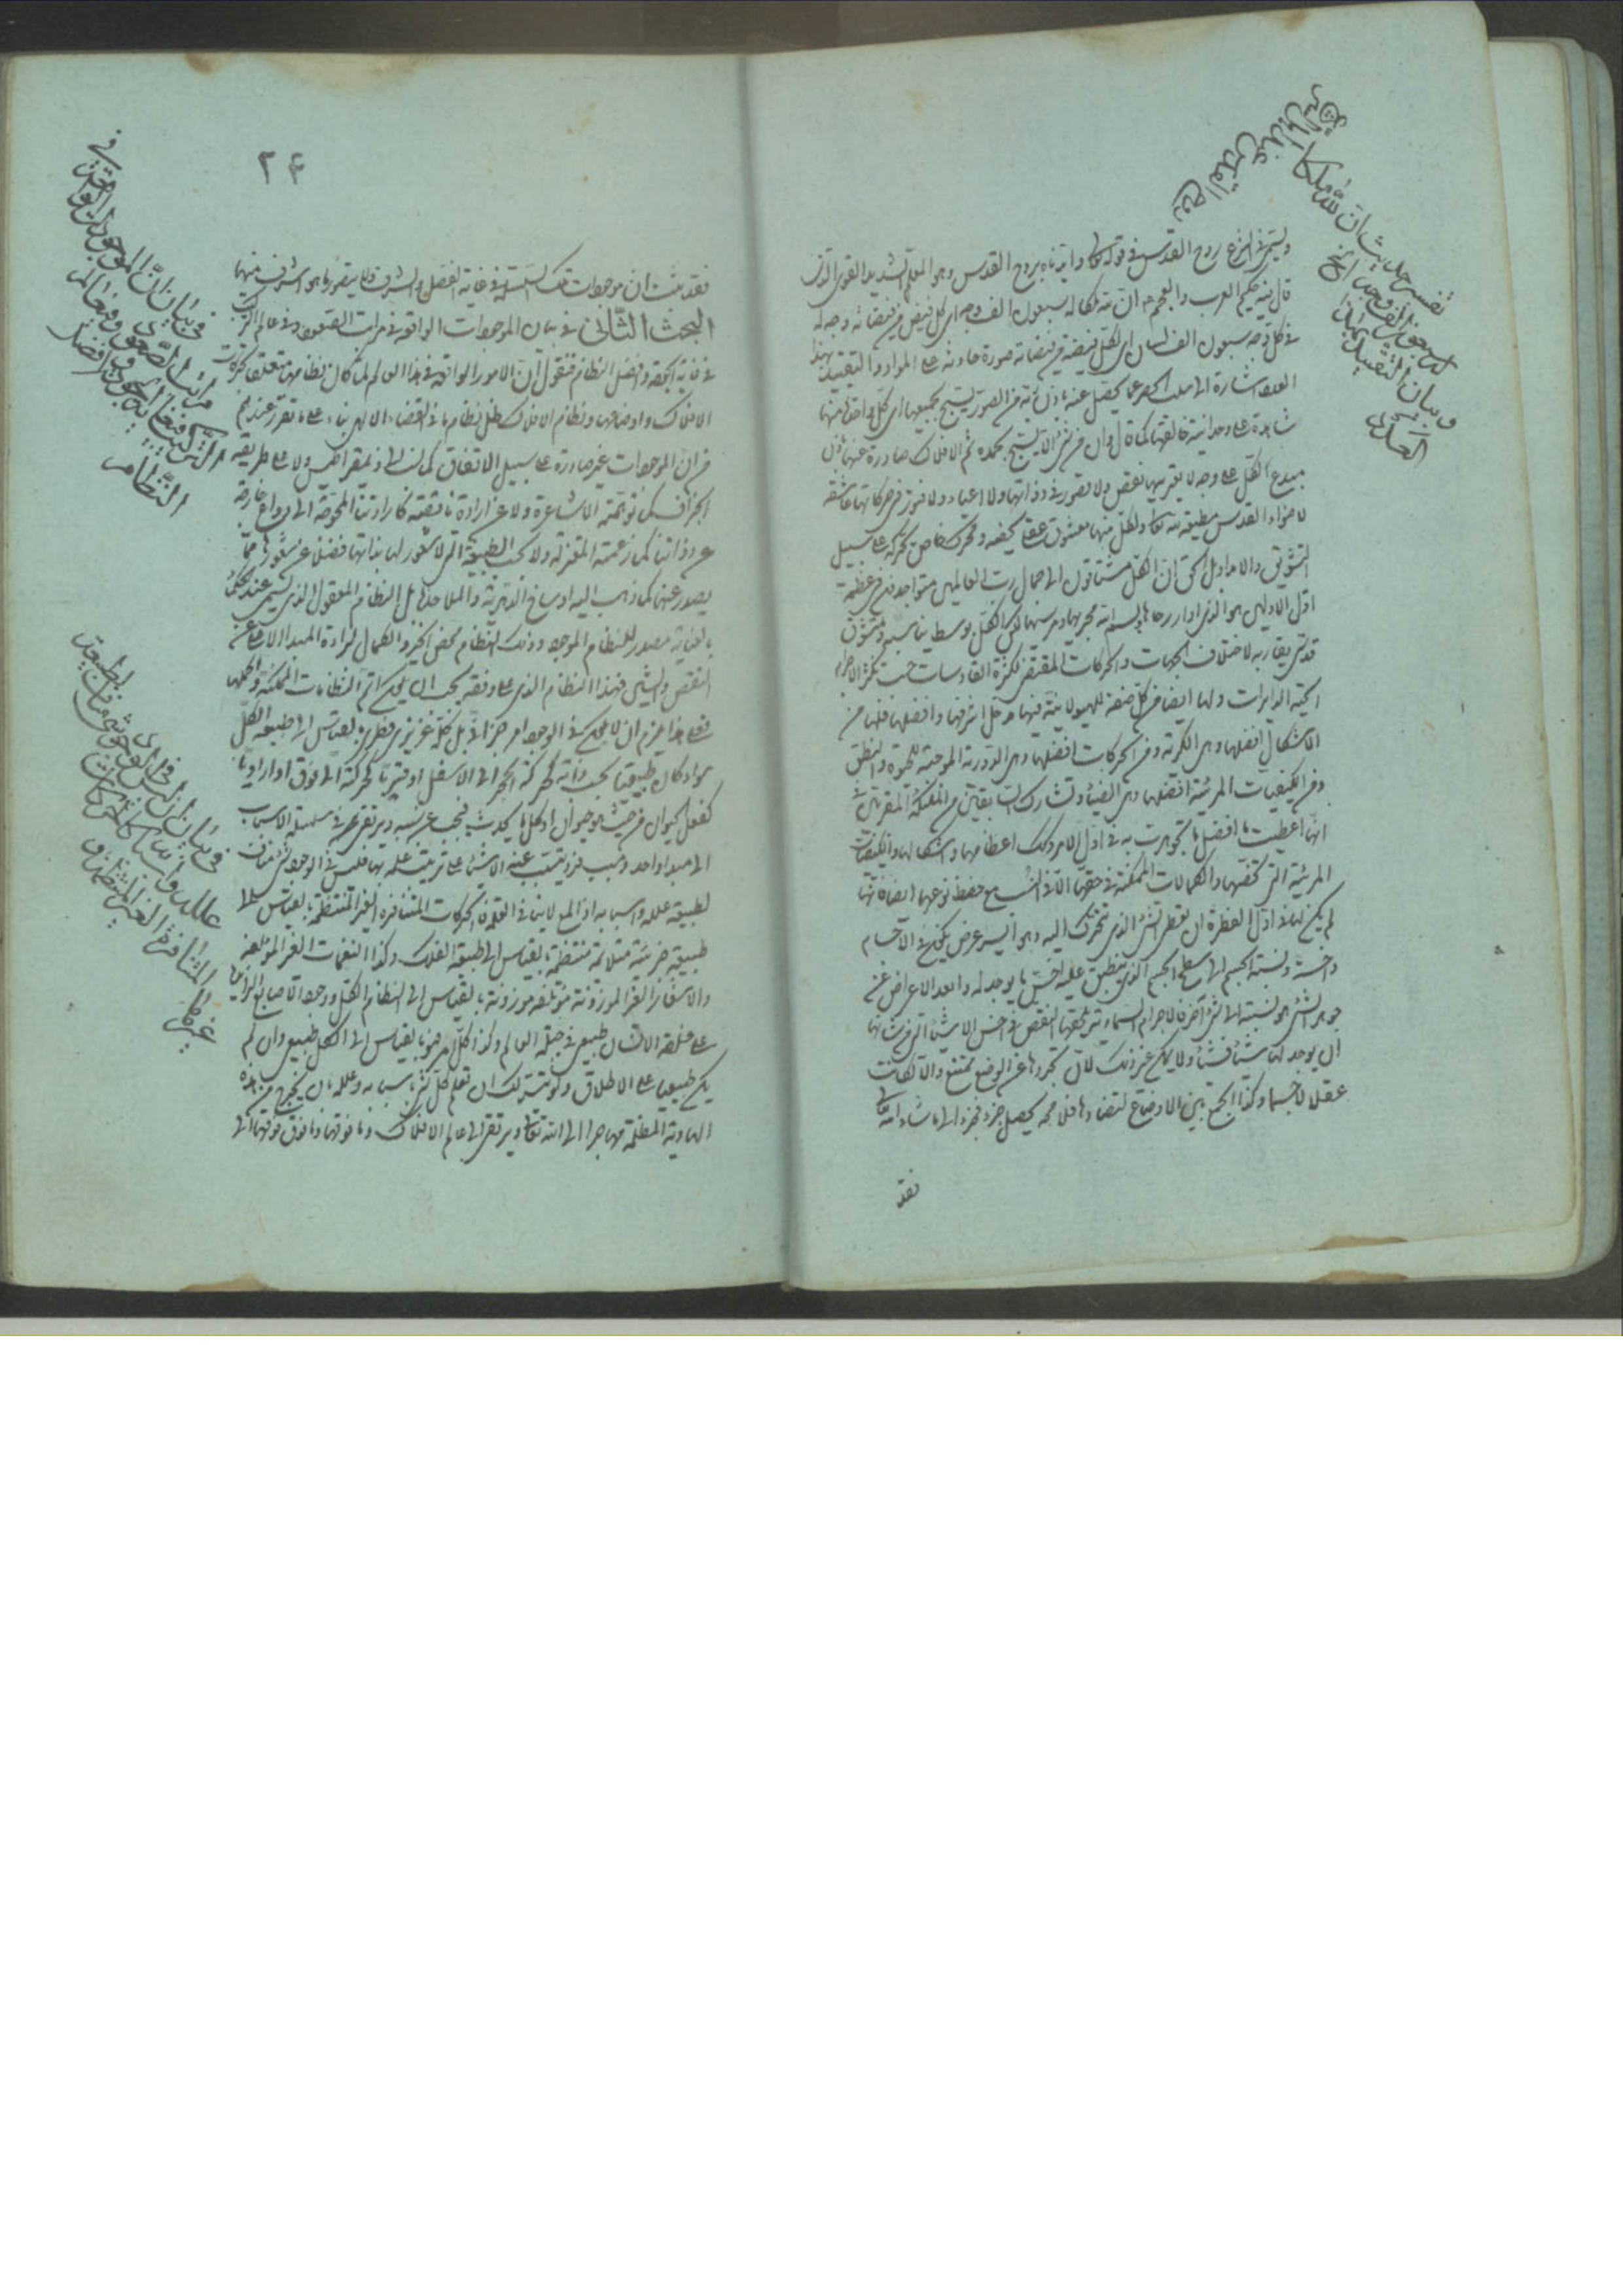 تفسير حديث ان لله ملكا
له سبعون الف وجه الخ
وبيان التقييد بهذا
العدد
روح القدس
ويسمى في الشرع روح القدس في قوله تعالى وايدناه بروح القدس وهو المعلم الشديد القوى الذى
قال فيه حكيم العرب والعجم ان لله ملكا له سبعون الف وجه اى كل فيض من فيضانه وجه له
في كل وجه سبعون الف لسان اى لكل فيضة من فيضانه صورة حادثة على المواد والتقييد بهذا
العدد اشارة الى عما يحصل عنه باذن الله من الصور يسبح بجميعها اى كل واحدة منها
شاهدة على وحدانية خالقها كما قال وان من شئ الا يسبح بحمده ثم الافلاك صادرة عنها باذن
مبدع الكل على وجه لا يعتريها نقص ولا قصور في ذواتها ولا اعياء ولا فتور في حركاتها عاشقة
لاضواء القدس مطيعة لله تعالى ولكل منها معشوق عقلى يخصه ومحرك خاص يحركه على سبيل
التشويق والامداد بل الحق ان الكل مشتاقون الى جمال رب العالمين متواجدون في عظمة
اول الاولين هو الذى ادار رحاها بسم الله مجريها ومرسيها لكن الكل بوسط يناسبه ومعشوق
قدسى يقاربه لاختلاف الجهات والحركات المقتضى لكثرة القاصدات حسب تكثر الاجرام
الحية الدايرات ولها ايضا من كل صفة للهيولانية فيها مدخل اشرفها وافضلها فلها من
الاشكال افضلها وهى الكرية ومن الحركات افضلها وهى الدورية الموجبة للحيوة والنطق
ومن الكيفيات المرئية افضلها وهى الضياء وتشارك السابقين من الملئكة المقربين في
انها اعطيت افضل ما تجوهرت به في اول الامر وكذلك اعظامها واشكالها والكيفيات
المرئية التى تخصها والكمالات الممكنة في حقها الا في النسب مع حفظ نوعها ايضا فانها
لم يكن لها في اول الفطرة ان يعطى الشئ الذى تتحرك اليه وهو ايسر عرض يكون في الاجسام
واخسه ونسبة الجسم الى سطح الجسم الذى ينطبق عليه اخس ما يوجد له وابعد الاعراض عن
جوهر الشئ هو نسبته الى شئ آخر فالاجرام السماوية يلحقها النقص في اخس الاشياء التى من شانها
ان يوجد لها شيئا فشيئا ولا يمكن غير ذلك لان تجردها عن الوضع ممتنع والا لكانت
عقلا لاجسما وكذا الجمع بين الاوضاع لتضادها فلا محالة يحصل جزء فجزء الى ما شاء الله تعالى
فقد
٢٤
فقد ثبت ان موجودات تلك السلسلة في غاية الفضل والشرف ولا يتصور ما هو اشرف منها
البحث الثاني في بيان الموجودات الواقعة في مراتب الصعود وفي عالم التركيب
في غاية الجودة وافضل النظام فنقول ان الامور الواقعة في هذا العالم لما كان نظامها متعلقا بحركات
الافلاك واوضاعها ونظام الافلاك ظل نظام ما في القضاء الالهى بناء على ما تقرر عندهم
من ان الموجودات غير صادرة على سبيل الاتفاق كما نسب الى ذيمقراطيس ولا على طريقة
الجزاف كما توهمته الاشاعرة ولا عن ارادة ناقصة كارادتنا المحوجة الى دواعى خارجة
عن ذواتنا كما زعمته المعتزلة ولا بحسب الطبيعة التى لا شعور لها بذاتها فضلا عن شعورها بما
يصدر عنها كما ذهب اليه اوساخ الدهرية والملاحدة بل النظام المعقول الذى يسمى عند الحكماء
بالعناية مصدر للنظام الموجود وذلك النظام محض الخير والكمال لبراءة المبدا الاعلى عن
النقص والشين فهذا النظام الذى على وفقه يجب ان يكون اتم النظامات الممكنة واكملها
فعلى هذا يلزم ان لا يكون في الوجود امر جزافى بل كله غريزى فطرى بالقياس الى طبيعة الكل
سواء كان طبيعيا بحسب ذاته كحركة الحجر الى الاسفل او قسريا كحركته الى فوق او اراديا
كفعل الحيوان من حيث هو حيوان او كل ما يحدث فيجب عن سبب ويرتقى في سلسلة الاسباب
الى مبدا واحد وسبب فرد يتسبب عنه الاشياء على ترتيب علمه بها فليس في الوجود شئ مناف
لطبيعة علله واسبابه اذ المعلول لا ينافى العلة فالحركات المتنافرة الغير المنتظمة بالقياس الى
طبيعة جزئية متلائمة منتظمة بالقياس الى طبيعة الفلك وكذا النغمات الغير المؤتلفة
والاشعار الغير الموزونة مؤتلفة موزونة بالقياس الى النظام الكلى ووجود الاصابع الزائدة
على خلقة الانسان طبيعى في جبلة العالم وكذا كل امر فهو بالقياس الى الكل طبيعى وان لم
يكن طبيعيا على الاطلاق ولو تيسر لك ان تعلم كل شئ باسبابه وعلله بان تخرج من هذه
الهاوية المظلمة مهاجرا الى الله تعالى وترتقى الى عالم الافلاك وما فوقها وما فوق فوقها الى
في بيان ان الموجودات الواقعة في
مراتب الصعود وفي عالم
التركيب في غاية الجودة وافضل
النظام
في بيان ان ليس في الوجود شئ مناف لطبيعة
علله واسبابه وان الحركات
المتنافرة الغير المنتظمة